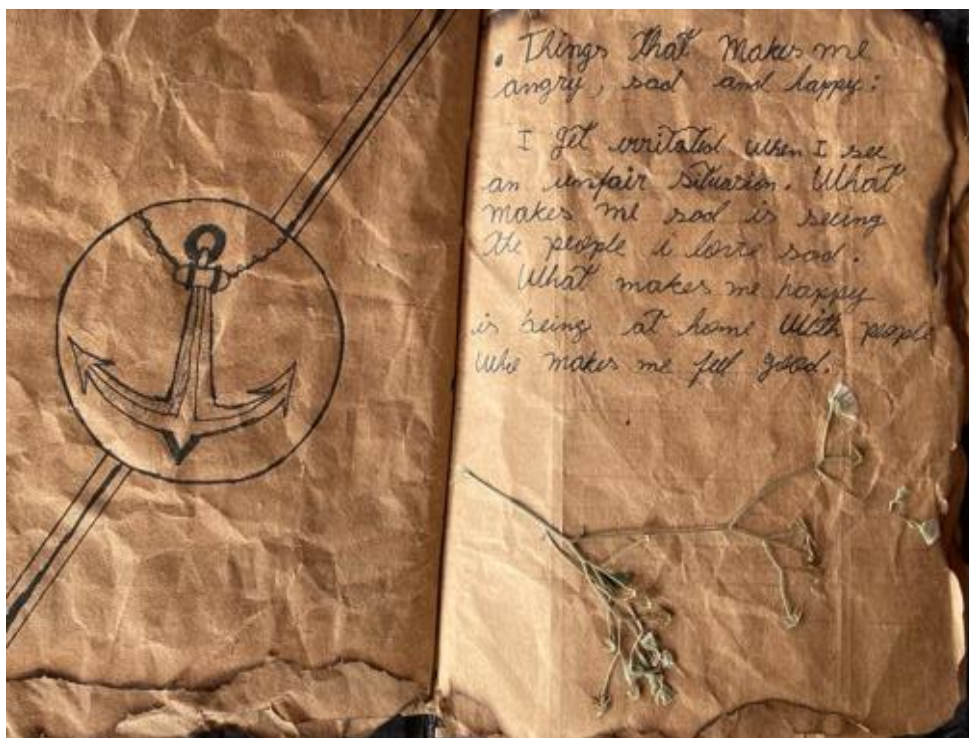 . Things That Makes me
angry, sad and happy:
I get irritated when I see
an unfair situation. What
makes me sad is seeing
the people i love sad.
What makes me happy
is being at home with people
who makes me feel good.